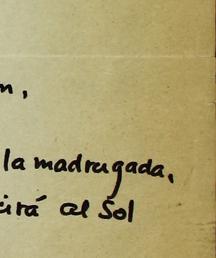 n,
la madrugada,
cirá al Sol